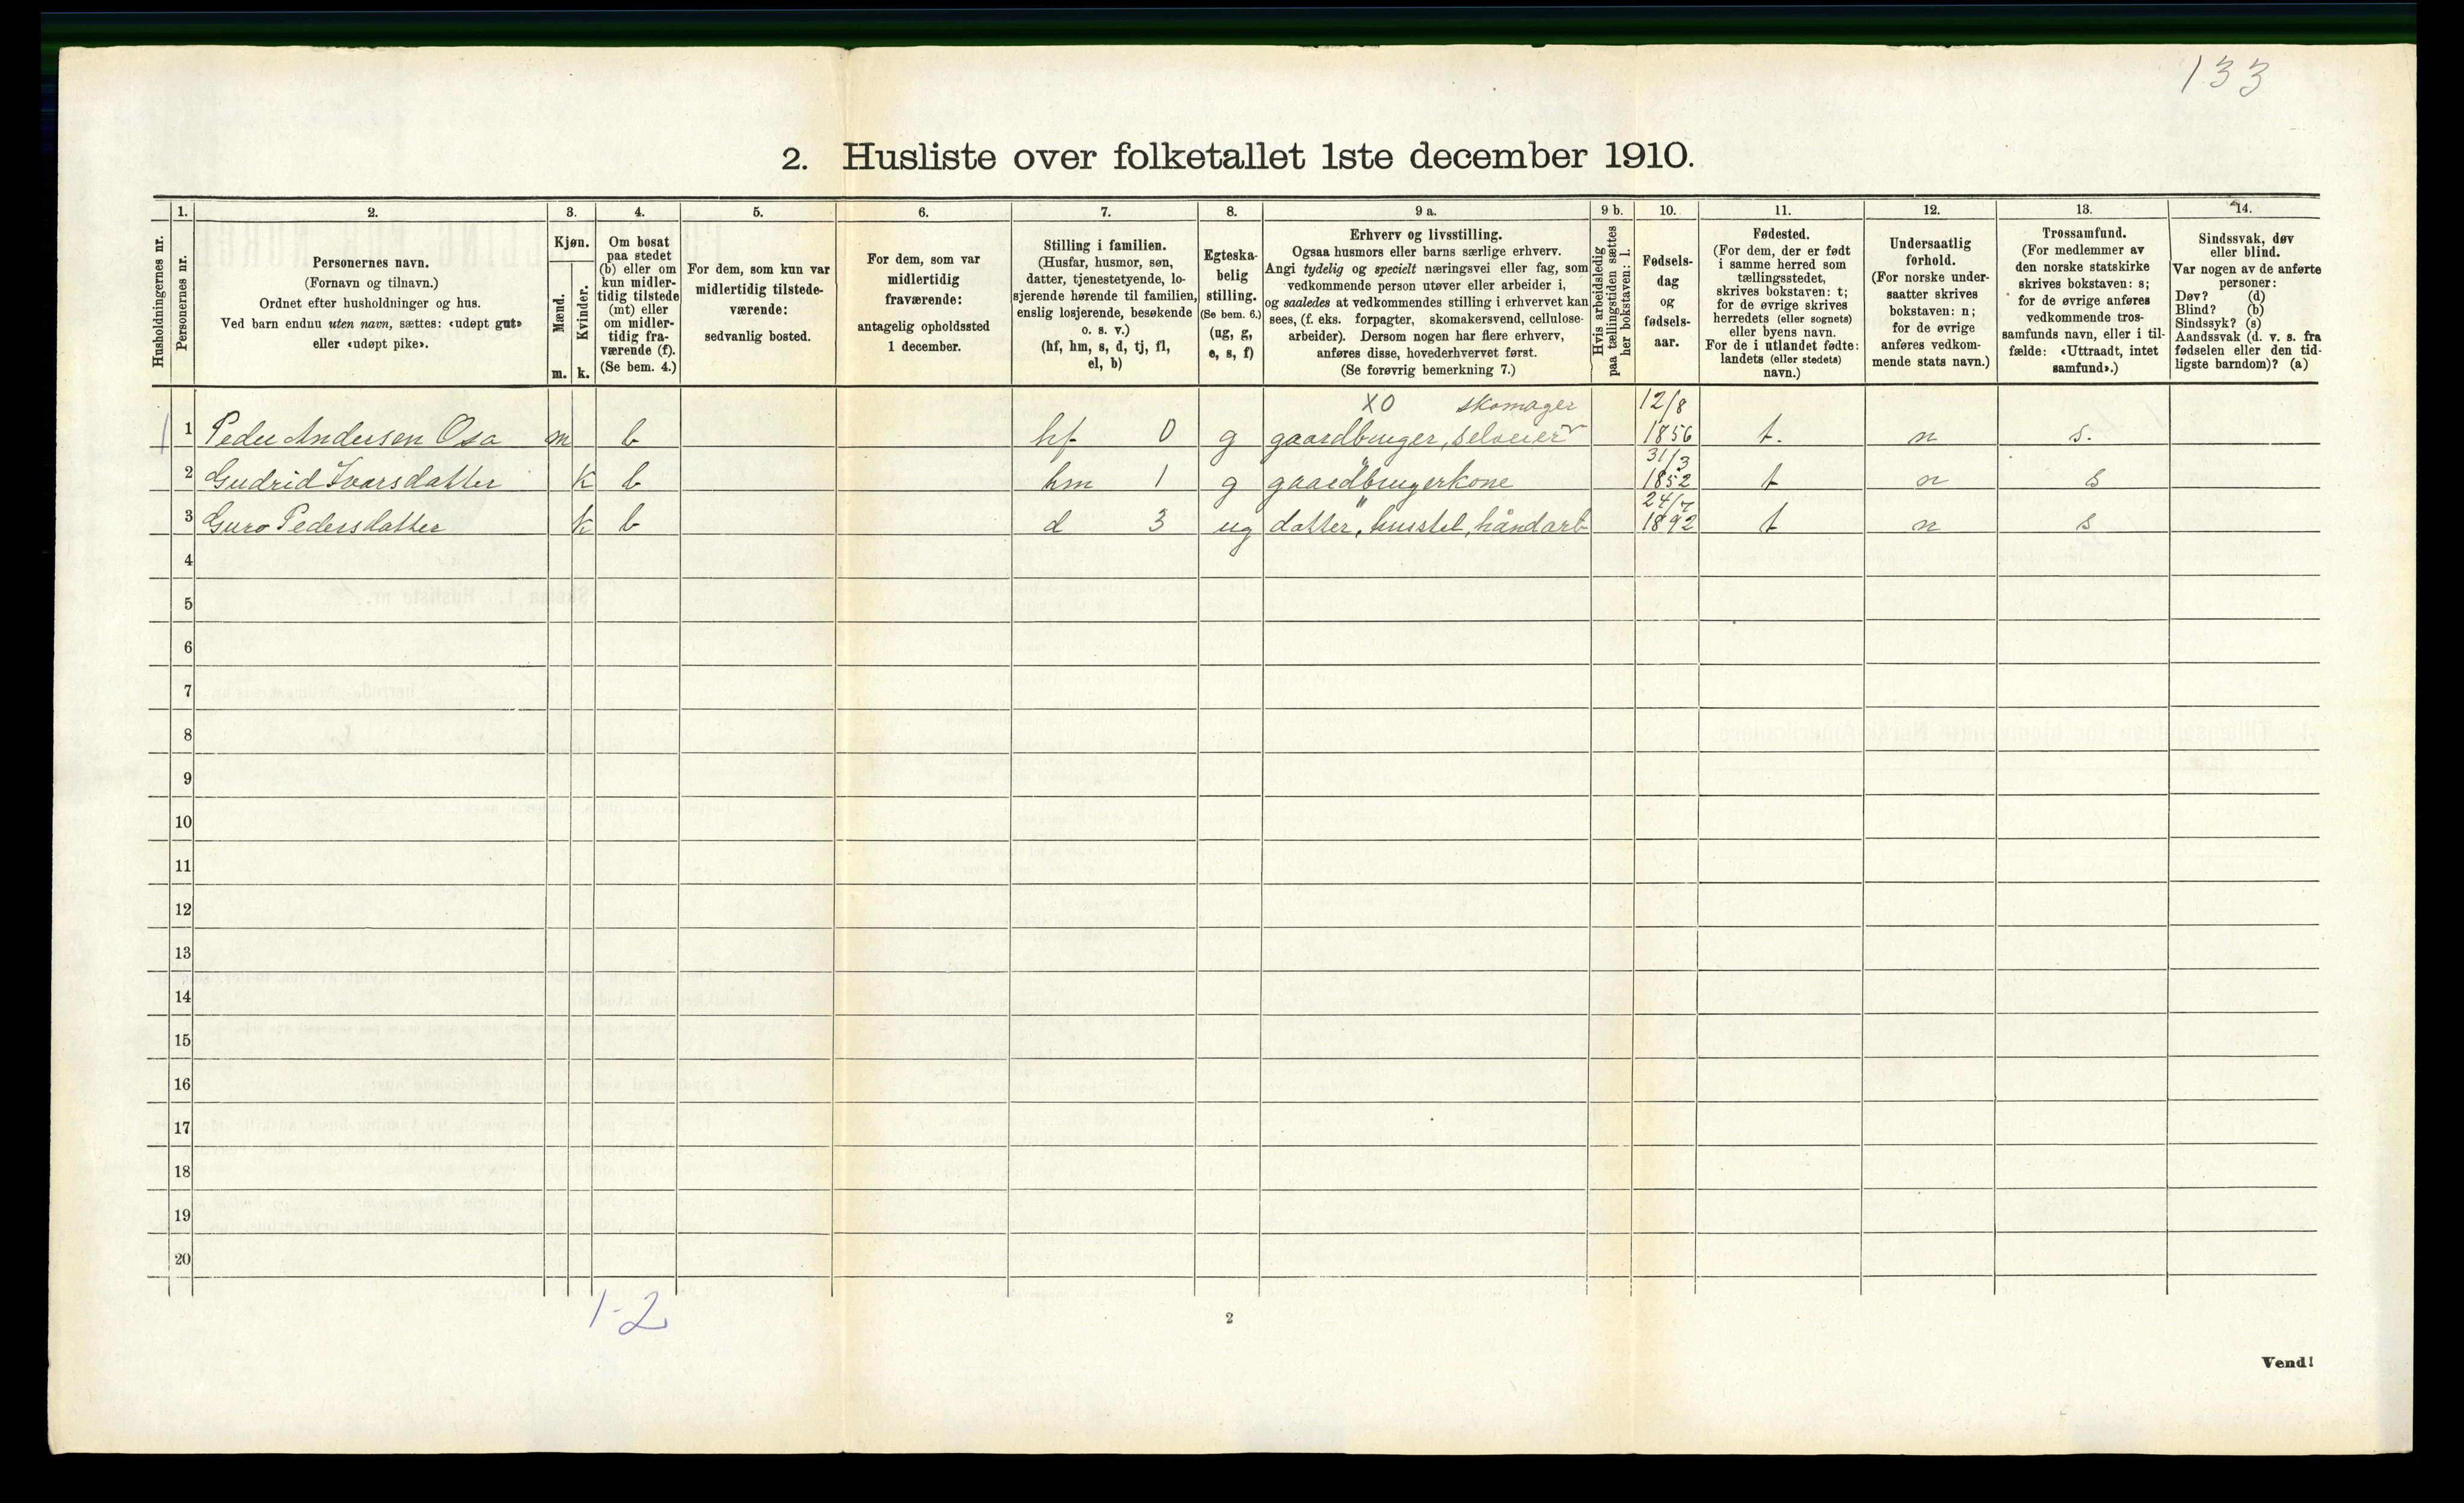 133
2. Husliste over folketallet 1ste december 1910.
Husholdningernes nr.
1.
Personernes nr.
2.
Personernes navn.
(Fornavn og tilnavn.)
Ordnet efter husholdninger og hus.
Ved barn endnu uten navn, sættes: «udøpt gut»
eller «udøpt pike».
3.
Kjøn.
Mænd.
Kvinder.
m. k.
4.
Om bosat
paa stedet
(b) eller om
kun midler-
tidig tilstede
(mt) eller
om midler-
tidig fra-
værende (f).
(Se bem. 4.)
5.
For dem, som kun var
midlertidig tilstede-
værende:
sedvanlig bosted.
6.
For dem, som var
midlertidig
fraværende:
antagelig opholdssted
1 december.
7.
Stilling i familien.
(Husfar, husmor, søn,
datter, tjenestetyende, lo-
sjerende hørende til familien,
enslig losjerende, besøkende
o. s. v.)
(hf, hm, s, d, tj, fl,
el, b)
8.
Egteska-
belig
stilling.
(Se bem. 6.)
(ug, g,
e, s, f)
9 a.
Erhverv og livsstilling.
Ogsaa husmors eller barns særlige erhverv.
Angi tydelig og specielt næringsvei eller fag, som
vedkommende person utøver eller arbeider i,
og saaledes at vedkommendes stilling i erhvervet kan
sees, (f. eks. forpagter, skomakersvend, cellulose-
arbeider). Dersom nogen har flere erhverv,
anføres disse, hovederhvervet først.
(Se forøvrig bemerkning 7.)
9 b.
Hvis arbeidsledig
paa tællingstiden sættes
her bokstaven: l.
10.
Fødsels-
dag
og
fødsels-
aar.
11.
Fødested.
(For dem, der er født
i samme herred som
tællingsstedet,
skrives bokstaven: t;
for de øvrige skrives
herredets (eller sognets)
eller byens navn.
For de i utlandet fødte:
landets (eller stedets)
navn.)
12.
Undersaatlig
forhold.
(For norske under-
saatter skrives
bokstaven: n;
for de øvrige
anføres vedkom-
mende stats navn.)
13.
Trossamfund.
(For medlemmer av
den norske statskirke
skrives bokstaven: s;
for de øvrige anføres
vedkommende tros-
samfunds navn, eller i til-
fælde: «Uttraadt, intet
samfund».)
14.
Sindssvak, døv
eller blind.
Var nogen av de anførte
personer:
Døv? (d)
Blind? (b)
Sindssyk? (s)
Aandssvak (d. v. s. fra
fødselen eller den tid-
ligste barndom)? (a)
XO skomager 12/8
1 1 Peder Andersen Osa m b hf 0 g gaardbruger, selveier 1856 t. n s.
31/3
2 Gudrid Ivarsdatter k b hm 1 g gaardbrugerkone 1852 t n s
24/7
3 Guro Pedersdatter k b d 3 ug datter, husstel, håndarb 1892 t n s
4
5
6
7
8
9
10
11
12
13
14
15
16
17
18
19
20
1-2
2
Vend!